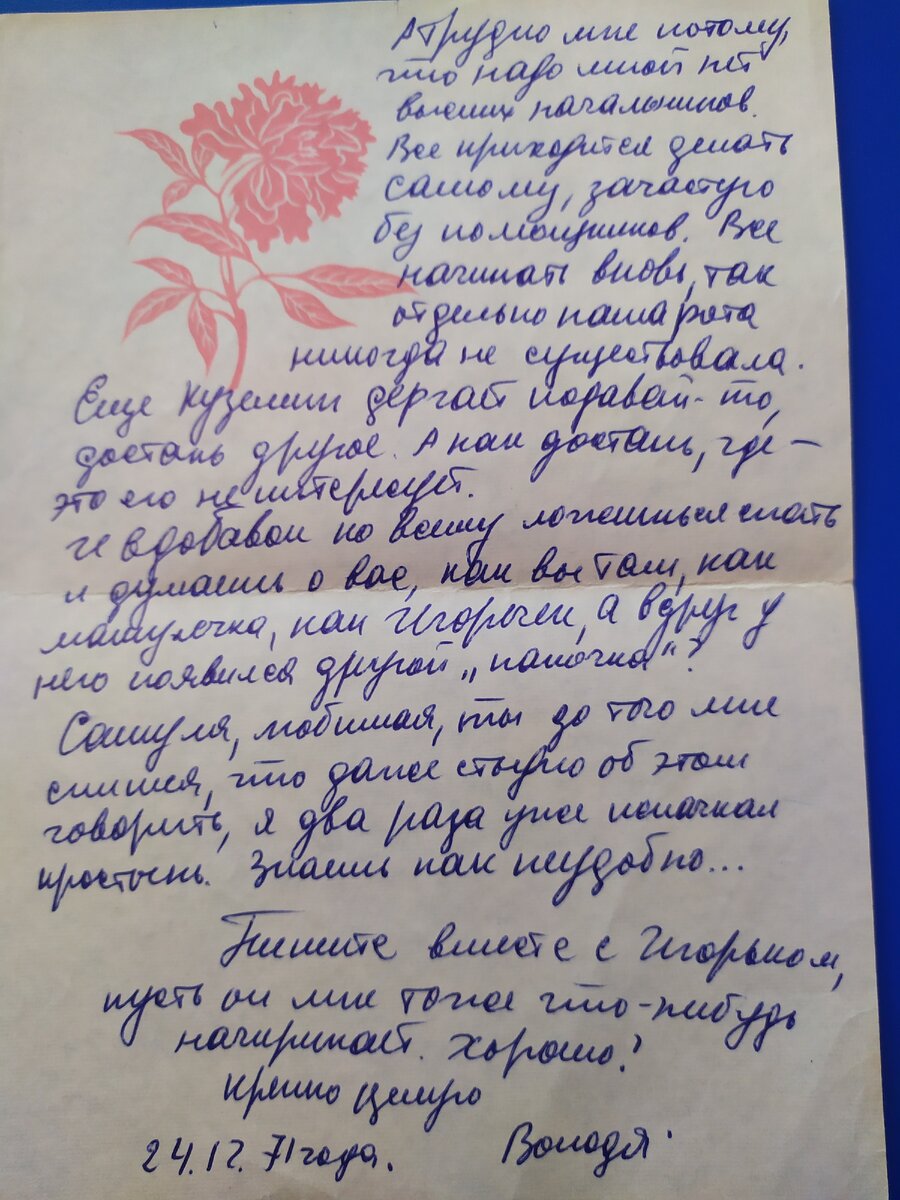 А трудно мне потому,
что надо мной нет
высших начальников.
Все приходится делать
самому, зачастую
без помощников. Все
начинать вновь, так
отдельно наша рота
никогда не существовала.
Еще Кузьмин дергает подавай-то,
достань другое. А как достать, где –
это его не интересует.
И вдобавок ко всему ложишься спать
и думаешь о вас, как вы там, как
мамулечка, как Игорёчек, а вдруг у
него появился другой „папочка"?
Сашуля, любимая, ты до того мне
снишся, что даже стыдно об этом
говорить, я два раза уже испачкал
простынь. Знаешь как неудобно...
Пишите вместе с Игорьком,
пусть он мне тоже что-нибудь
начирикает. Хорошо?
Крепко целую
24.12.71 года. Володя